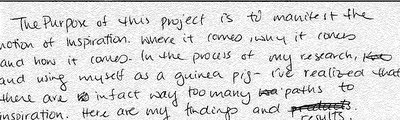 The Purpose of this project is to manifest the
notion of Inspiration. Where it comes, why it comes
and how it comes. In the process of my research,
and using myself as a guinea pig - I've realized that
there are in fact way too many paths to
inspiration. Here are my findings and products.
results.